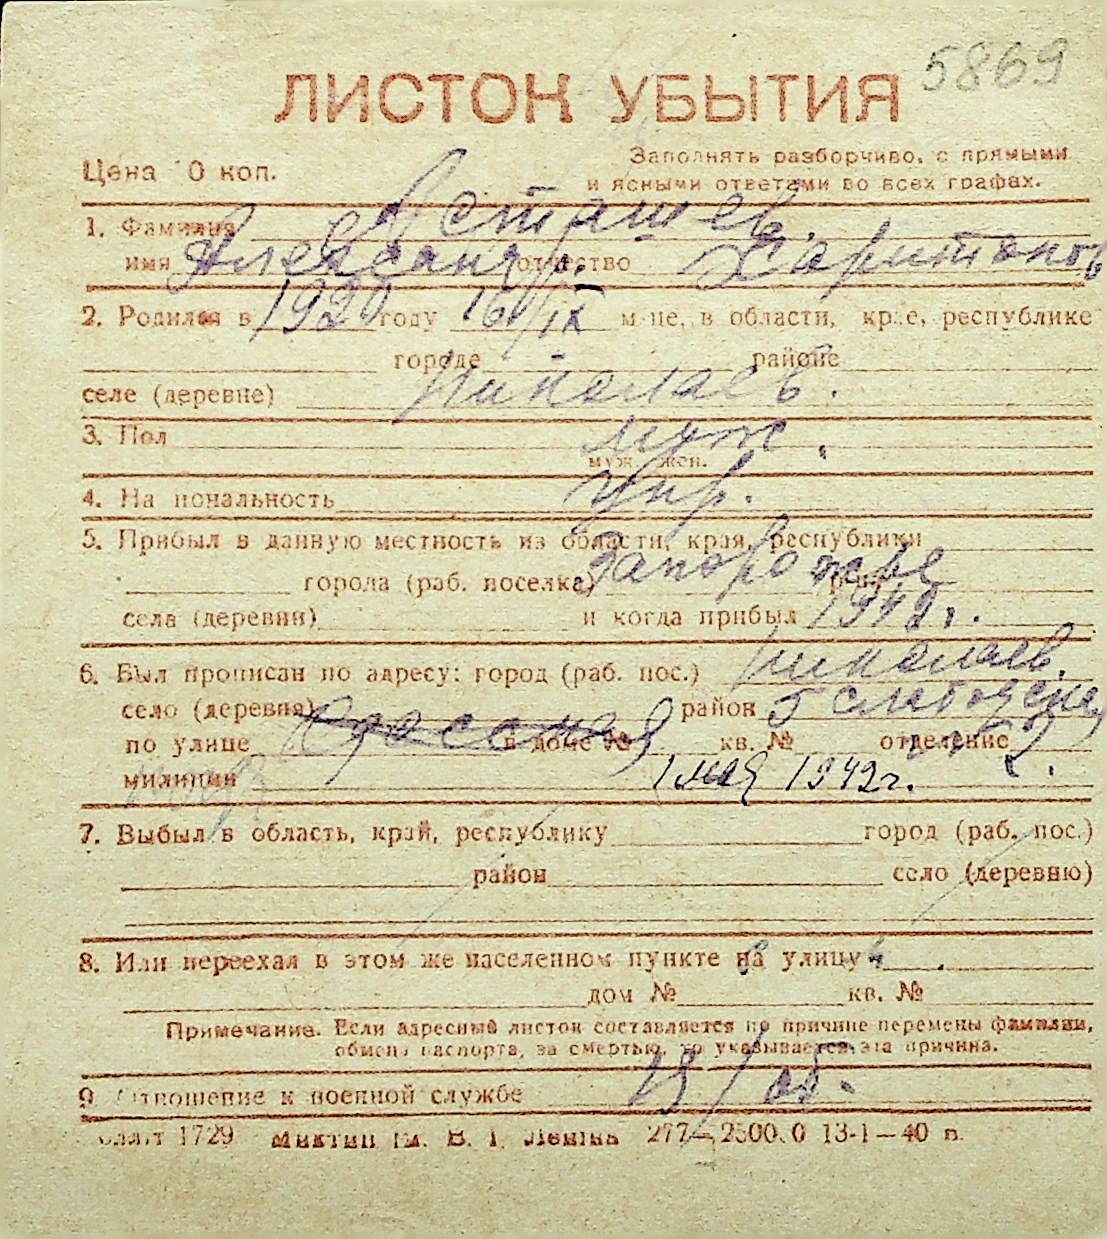 5869
ЛИСТОК УБЫТИЯ
Цена 10 коп.
Заполнять разборчиво, с прямыми
и ясными ответами во всех графах.
1. Фамилия Асташев.
имя Александр. отчество Харитонов
2. Родился в 1920 году 16/IX м-це, в области, крае, республике
городе районе
селе (деревне) Николаев.
3. Пол муж.
муж. жен.
4. Национальность укр.
5. Прибыл в данную местность из области, края, республики
города (раб. поселка) Запорожье р-на
села (деревни) и когда прибыл 1942 г.
6. Был прописан по адресу: город (раб. пос.) Николаев.
село (деревня) район 5 слободская
по улице в доме № кв. № отделение 2.
милиции 1 мая 1942 г.
7. Выбыл в область, край, республику город (раб. пос.)
район село (деревню)
8. Или переехал в этом же населенном пункте на улицу
дом № кв. №
Примечание. Если адресный листок составляется по причине перемены фамилии,
обмена паспорта, за смертью, то указывается эта причина.
9 Отношение к военной службе в/об.
1729 им. В. І. Леніна 277—2500.0 13-1—40 п.